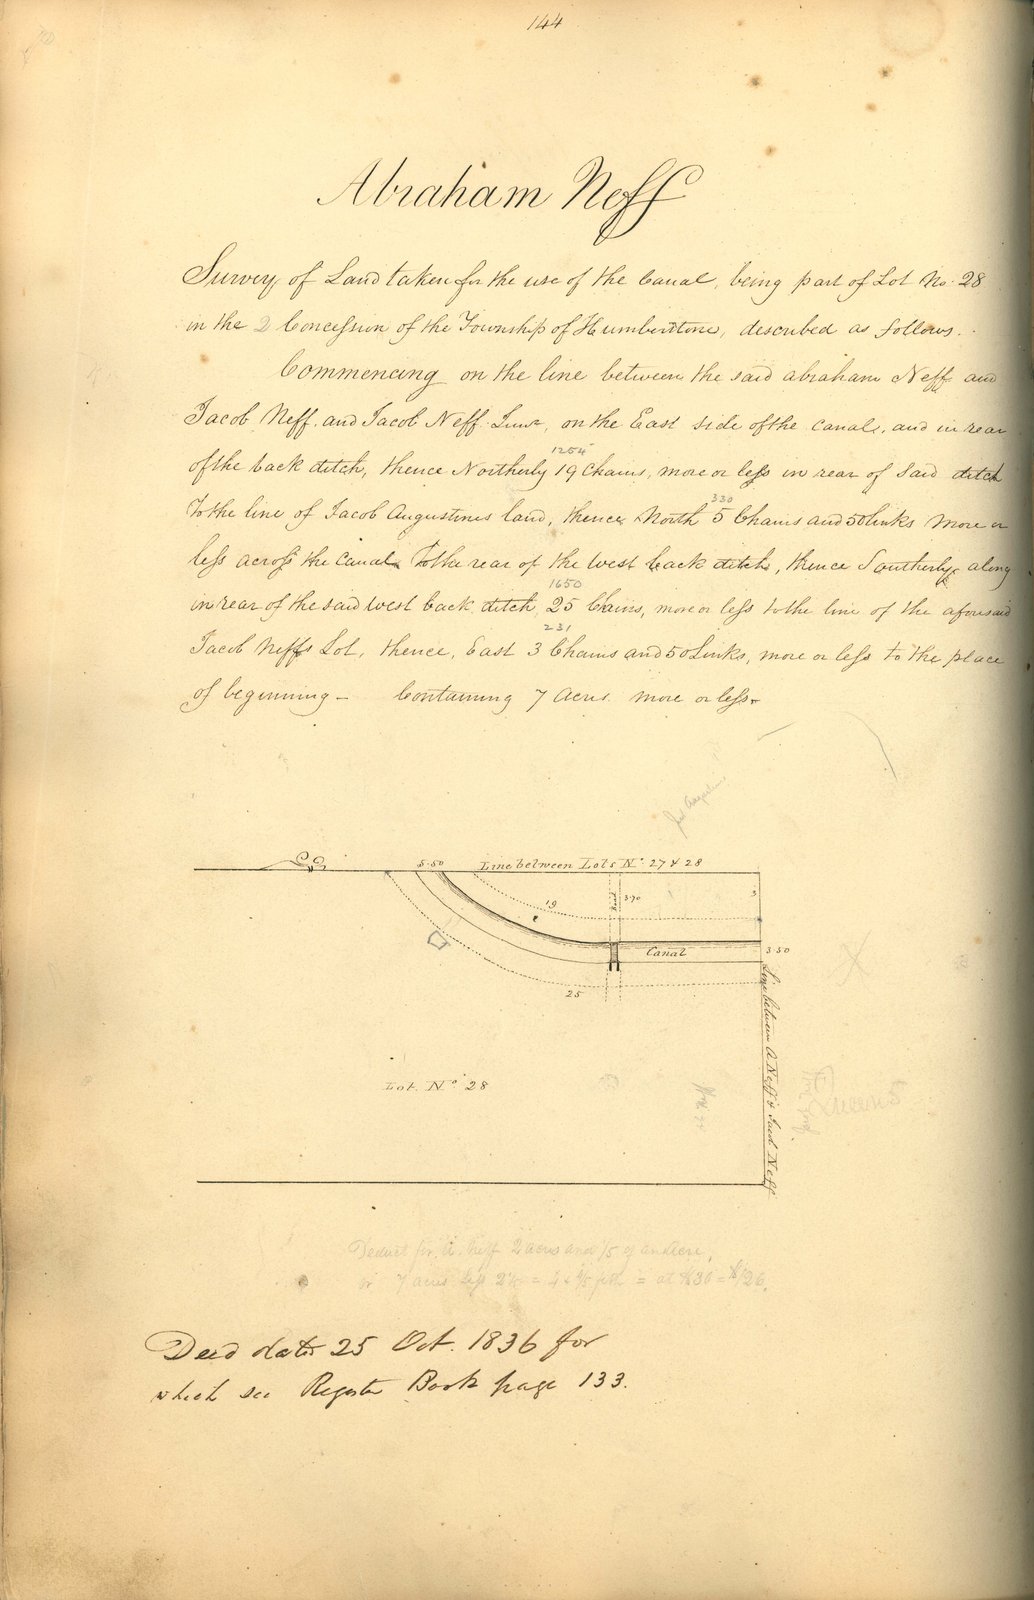 144
Abraham Neff
Survey of Land taken for the use of the Canal, being part of Lot No. 28
in the 2 Concession of the Township of Humberstone, described as follows.
Commencing on the line between the said abraham Neff and
Jacob Neff. and Jacob Neff Junr, on the East side of the canal, and in rear
1254
of the back ditch, thence Northerly 19 Chains, more or less in rear of said ditch
330
To the line of Jacob Augustines land, thence North 5 Chains and 50 links more or
less across the Canal To the rear of the west back ditch, thence Southerly along
1650
in rear of the said west back ditch 25 Chains, more or less to the line of the aforesaid
231
Jacob Neffs Lot, thence, East 3 Chains and 50 Links, more or less to the place
of beginning - Containing 7 acres more or less.
5.50 Line between Lots No. 27 & 28
19
Road
3.70
3
Canal
3.50
25
Line between A Neff & Jacob Neff
Lot. No. 28
Deduct for A. Neff 2 acres and 1/5 of an Acre,
or 7 acres less
Deed dated 25 Oct. 1836 for
which see Register Book page 133.